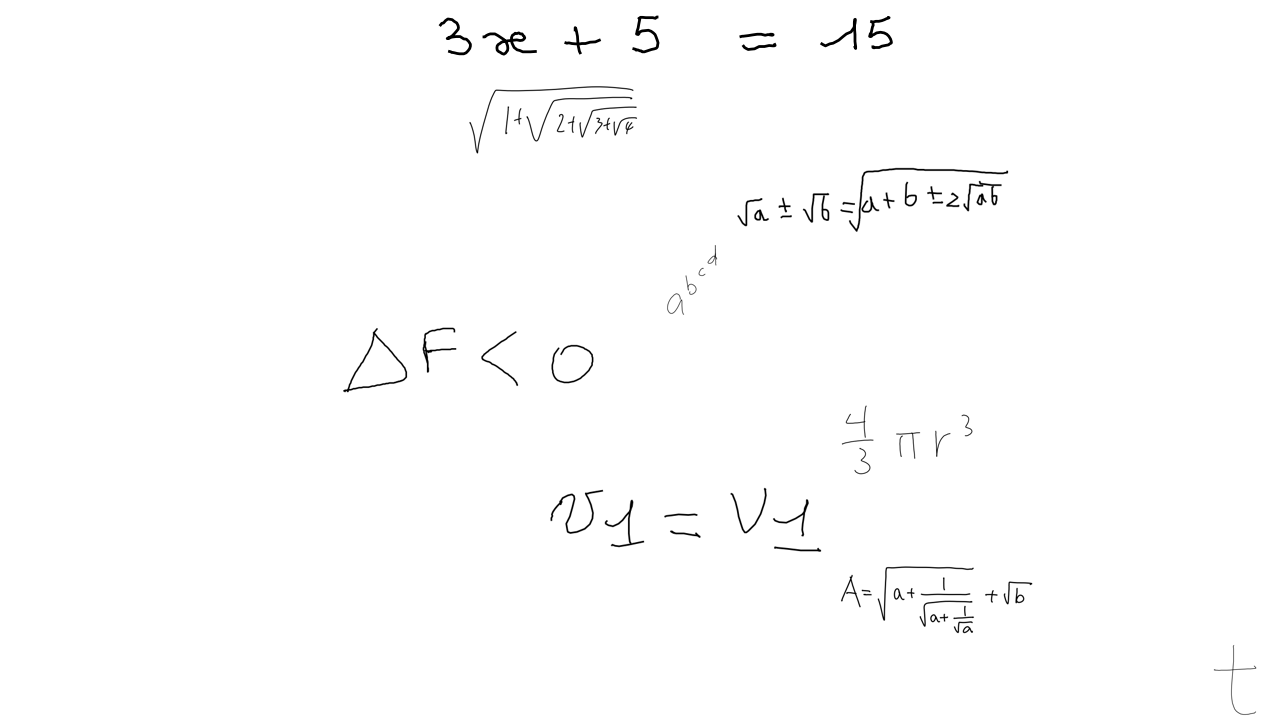 3x + 5 = 15
√(1+√(2+√(3+√4)))
√a ± √b = √(a+b±2√(ab))
a^(b^(c^d))
ΔF < 0
4/3 πr³
v1 = v1
A = √(a + 1/√(a + 1/√a)) + √b
t